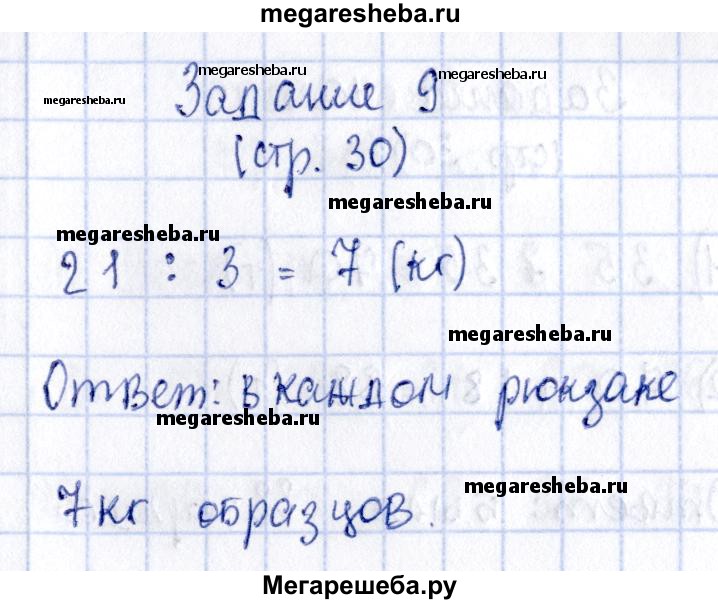 megaresheba.ru
megaresheba.ru
megaresheba.ru
megaresheba.ru
Задание 9
(стр. 30)
megaresheba.ru
megaresheba.ru
21 : 3 = 7 (кг)
megaresheba.ru
Ответ: в каждом рюкзаке
megaresheba.ru
megaresheba.ru
7 кг образцов.
Мегарешеба.ру